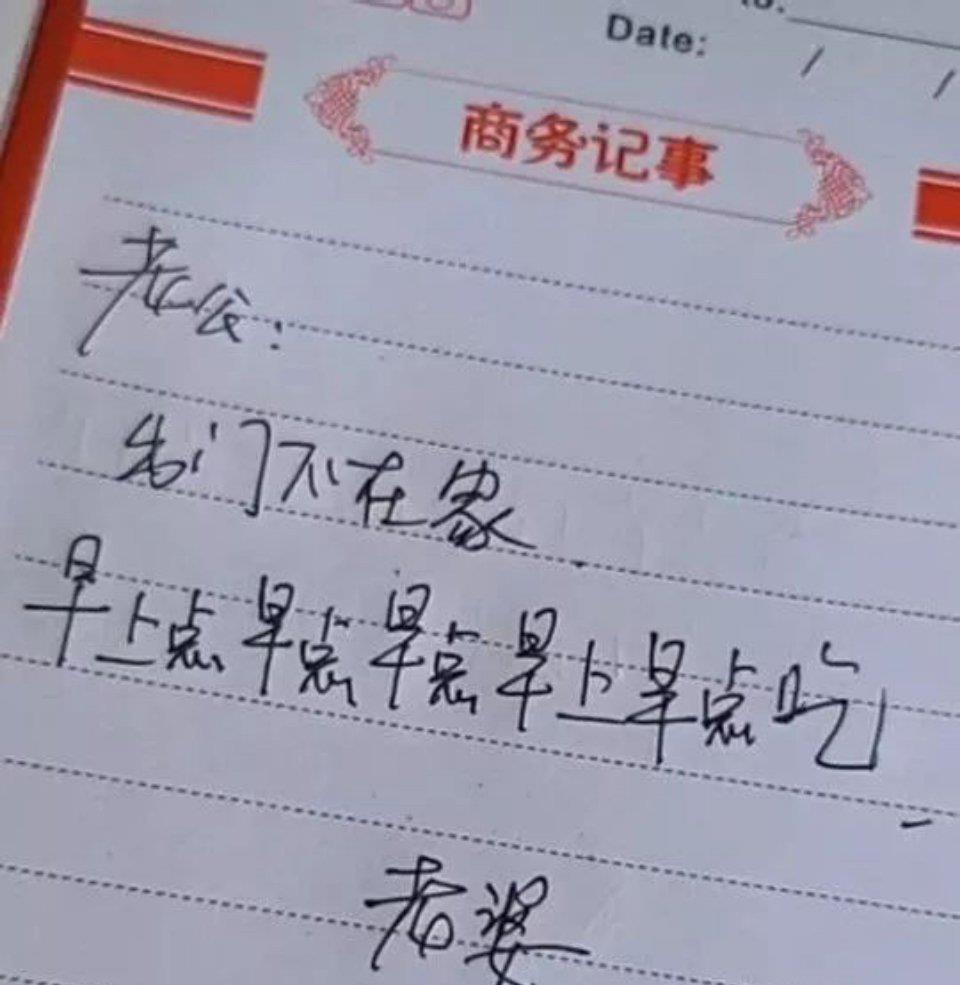 Date: / /
商务记事
老公:
出门不在家
早上点早点早点早上早点吃
老婆